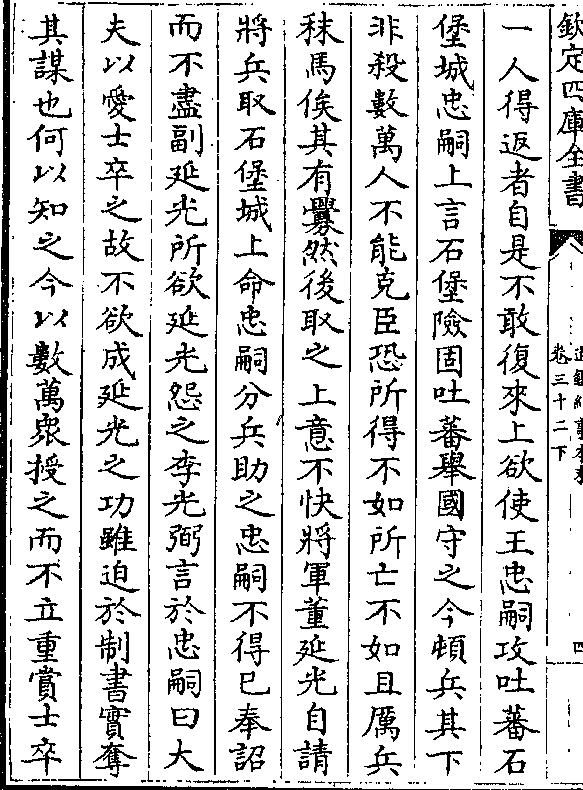 欽定四庫全書
卷三十二下
四
一人得返者自是不敢復來上欲使王忠嗣攻吐蕃石
堡城忠嗣上言石堡險固吐蕃舉國守之今頓兵其下
非殺數萬人不能克臣恐所得不如所亡不如且厲兵
秣馬俟其有釁然後取之上意不快將軍董延光自請
將兵取石堡城上命忠嗣分兵助之忠嗣不得已奉詔
而不盡副延光所欲延光怨之李光弼言於忠嗣曰大
夫以愛士卒之故不欲成延光之功雖迫於制書實奪
其謀也何以知之今以數萬衆授之而不立重賞士卒